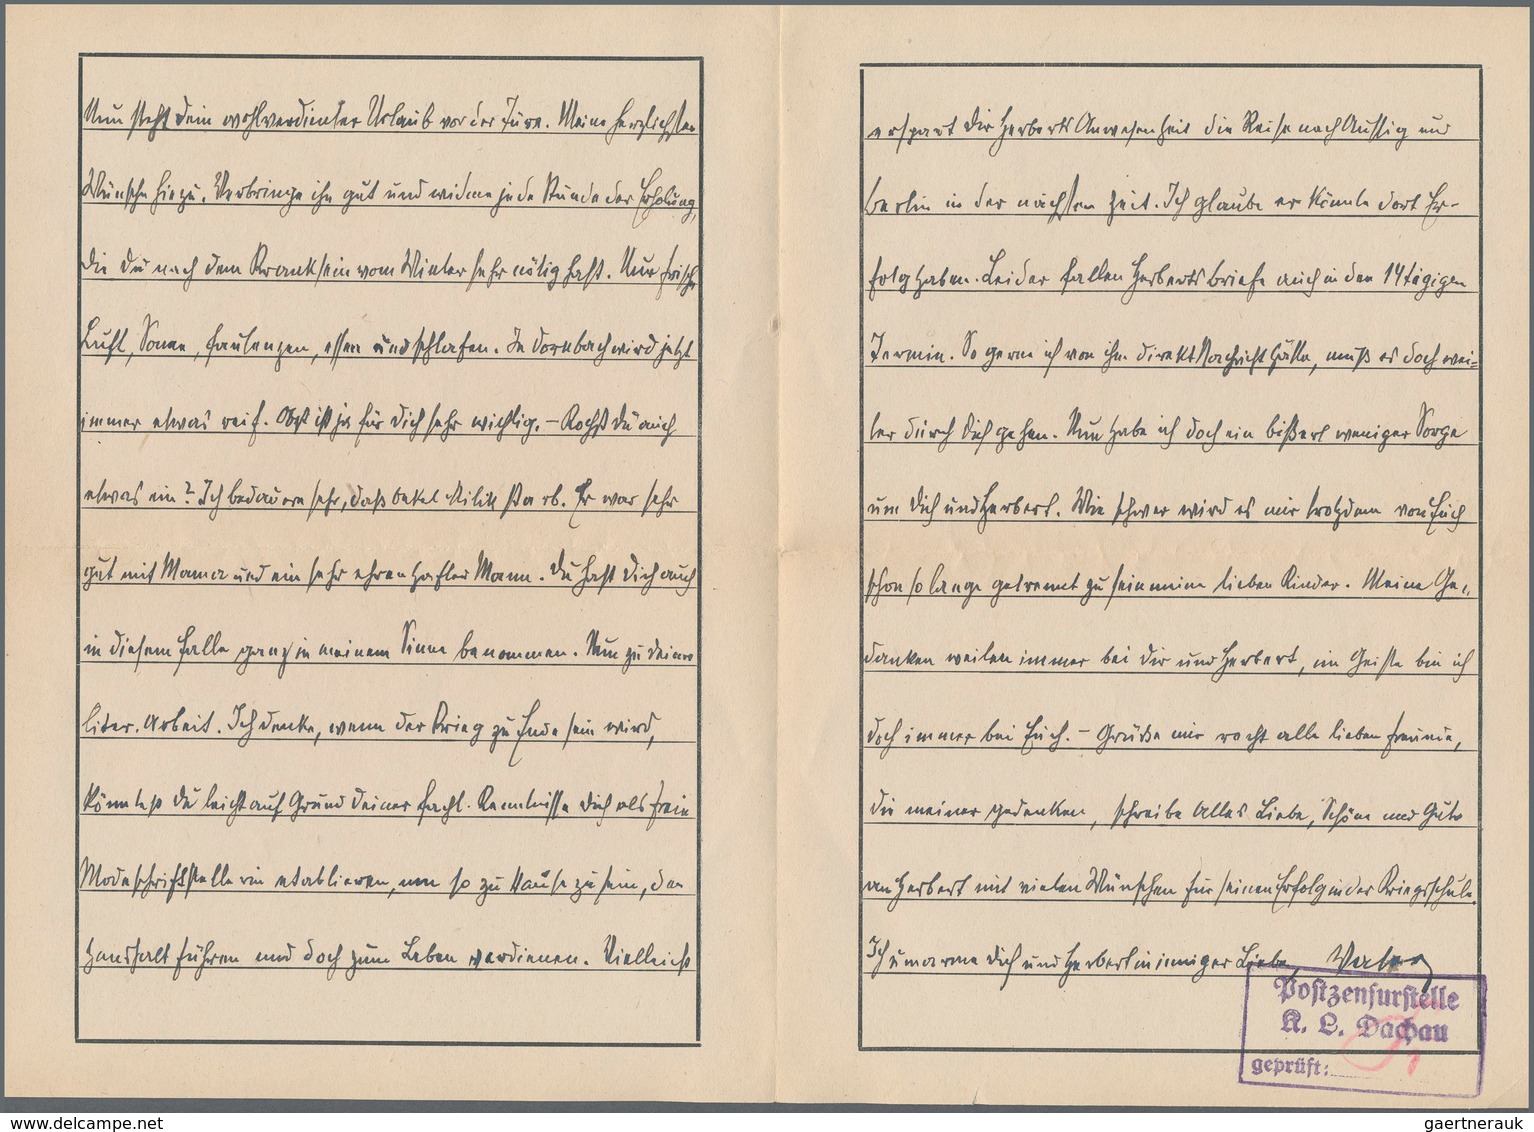 Nun steht dein wohlverdienter Urlaub vor der Türe. Meine herzlichsten
Wünsche hiezu. Verbringe ihn gut und widme jede Stunde der Erholung,
die du nach dem Kranksein vom Winter sehr nötig hast. Nur frische
Luft, Sonne, faulenzen, essen und schlafen. In Dornbach wird jetzt
immer etwas reif. Obst ist ja für dich sehr wichtig. – Kochst du auch
etwas ein? Ich bedauere sehr, daß Onkel Milik starb. Er war sehr
gut mit Mama und ein sehr ehrenhafter Mann. Du hast dich auch
in diesem Falle ganz in meinem Sinne benommen. Nun zu deiner
liter. Arbeit. Ich denke, wenn der Krieg zu Ende sein wird,
könntest du leicht auf Grund deiner fachl. Kenntnisse dich als freie
Modeschriftstellerin etablieren, um so zu Hause zu sein, den
Haushalt führen und doch zum Leben verdienen. Vielleicht
erspart dir Herberts Anwesenheit die Reise nach Aussig und
Berlin in der nächsten Zeit. Ich glaube er könnte dort Er-
folg haben. Leider fallen Herberts Briefe auch in den 14tägigen
Termin. So gerne ich von ihm direkt Nachricht hätte, muß es doch wei-
ter durch dich gehen. Nun habe ich doch ein bißerl weniger Sorge
um dich und Herbert. Wie schwer wird es mir trotzdem von Euch
schon so lange getrennt zu sein meine lieben Kinder. Meine Ge-
danken weilen immer bei dir und Herbert, im Geiste bin ich
doch immer bei Euch. – Grüße mir recht alle lieben Freunde,
die meiner gedenken, schreibe alles Liebe, Schöne und Gute
an Herbert mit vielen Wünschen für seinen Erfolg in der Kriegsschule.
Ich umarme dich und Herbert in inniger Liebe, Vater
Postzensurstelle
K. L. Dachau
geprüft:
www.delcampe.net
gaertnerauk